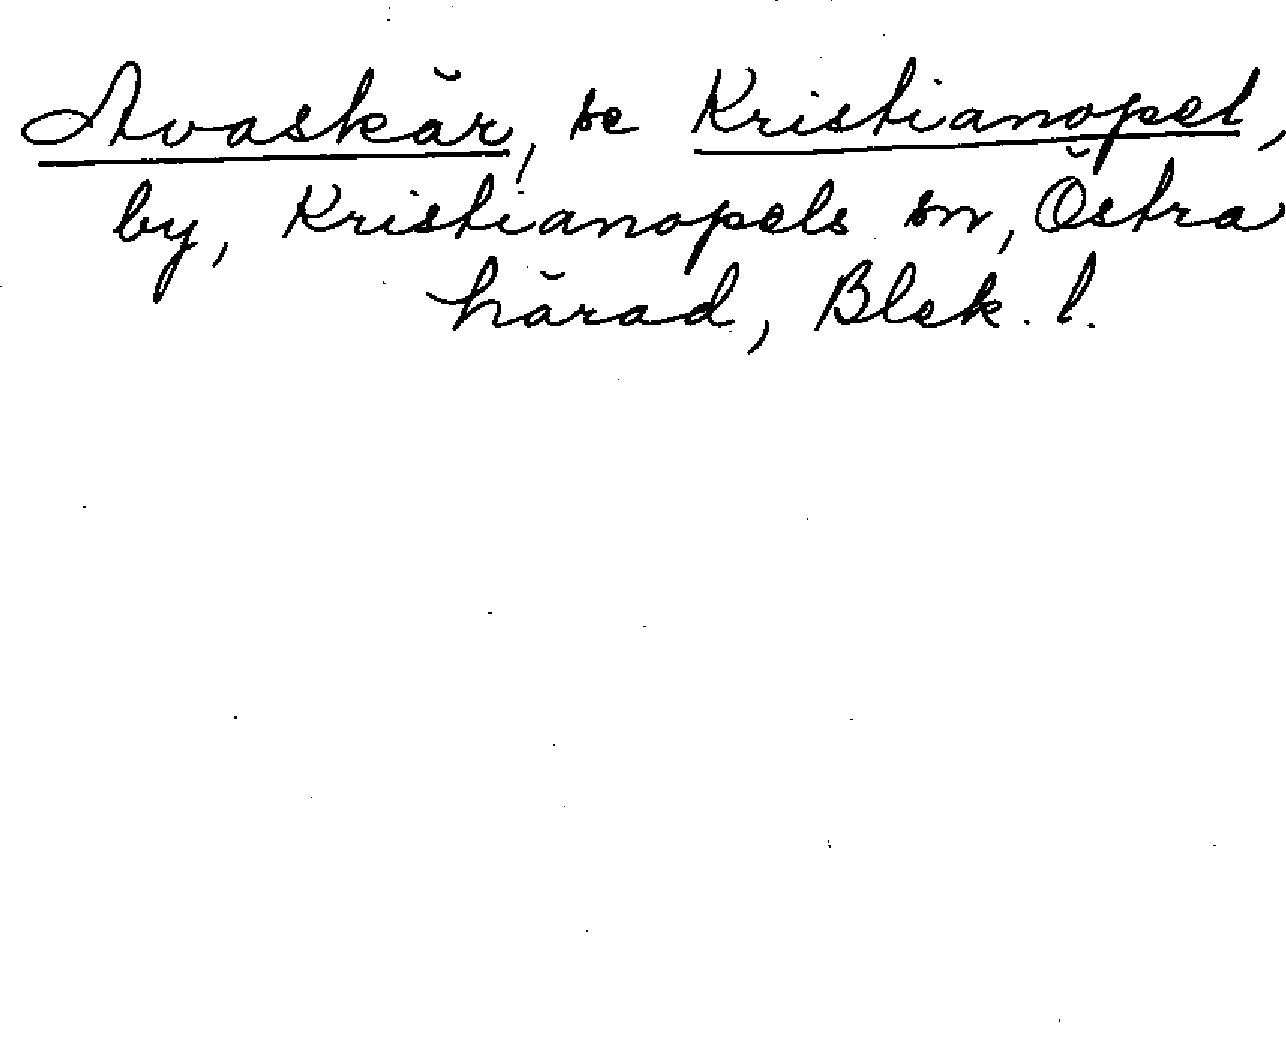 Avaskär, se Kristianopel,
by, Kristianopels sn, Östra
härad, Blek. l.